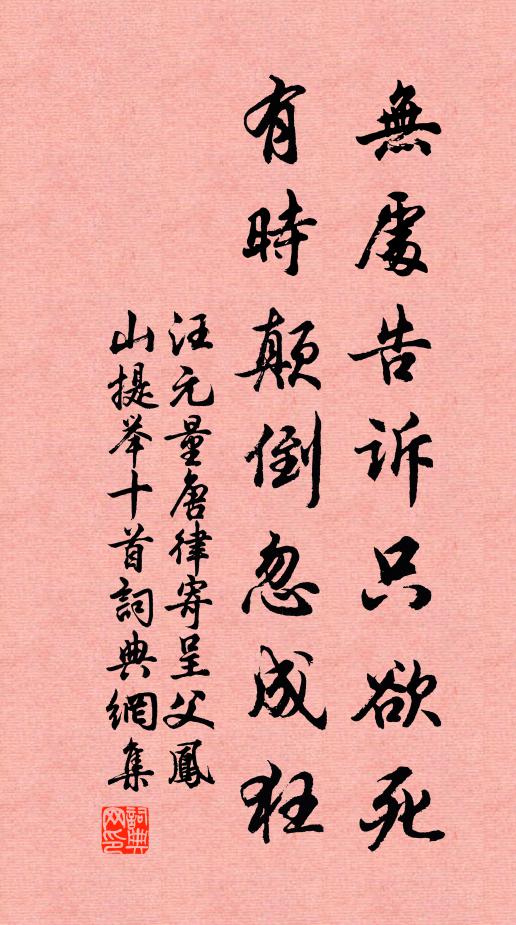 無處告訴只欲死
有時顛倒忽成狂
汪元量唐律寄呈父鳳
山提举十首詞典網集
詞典网印